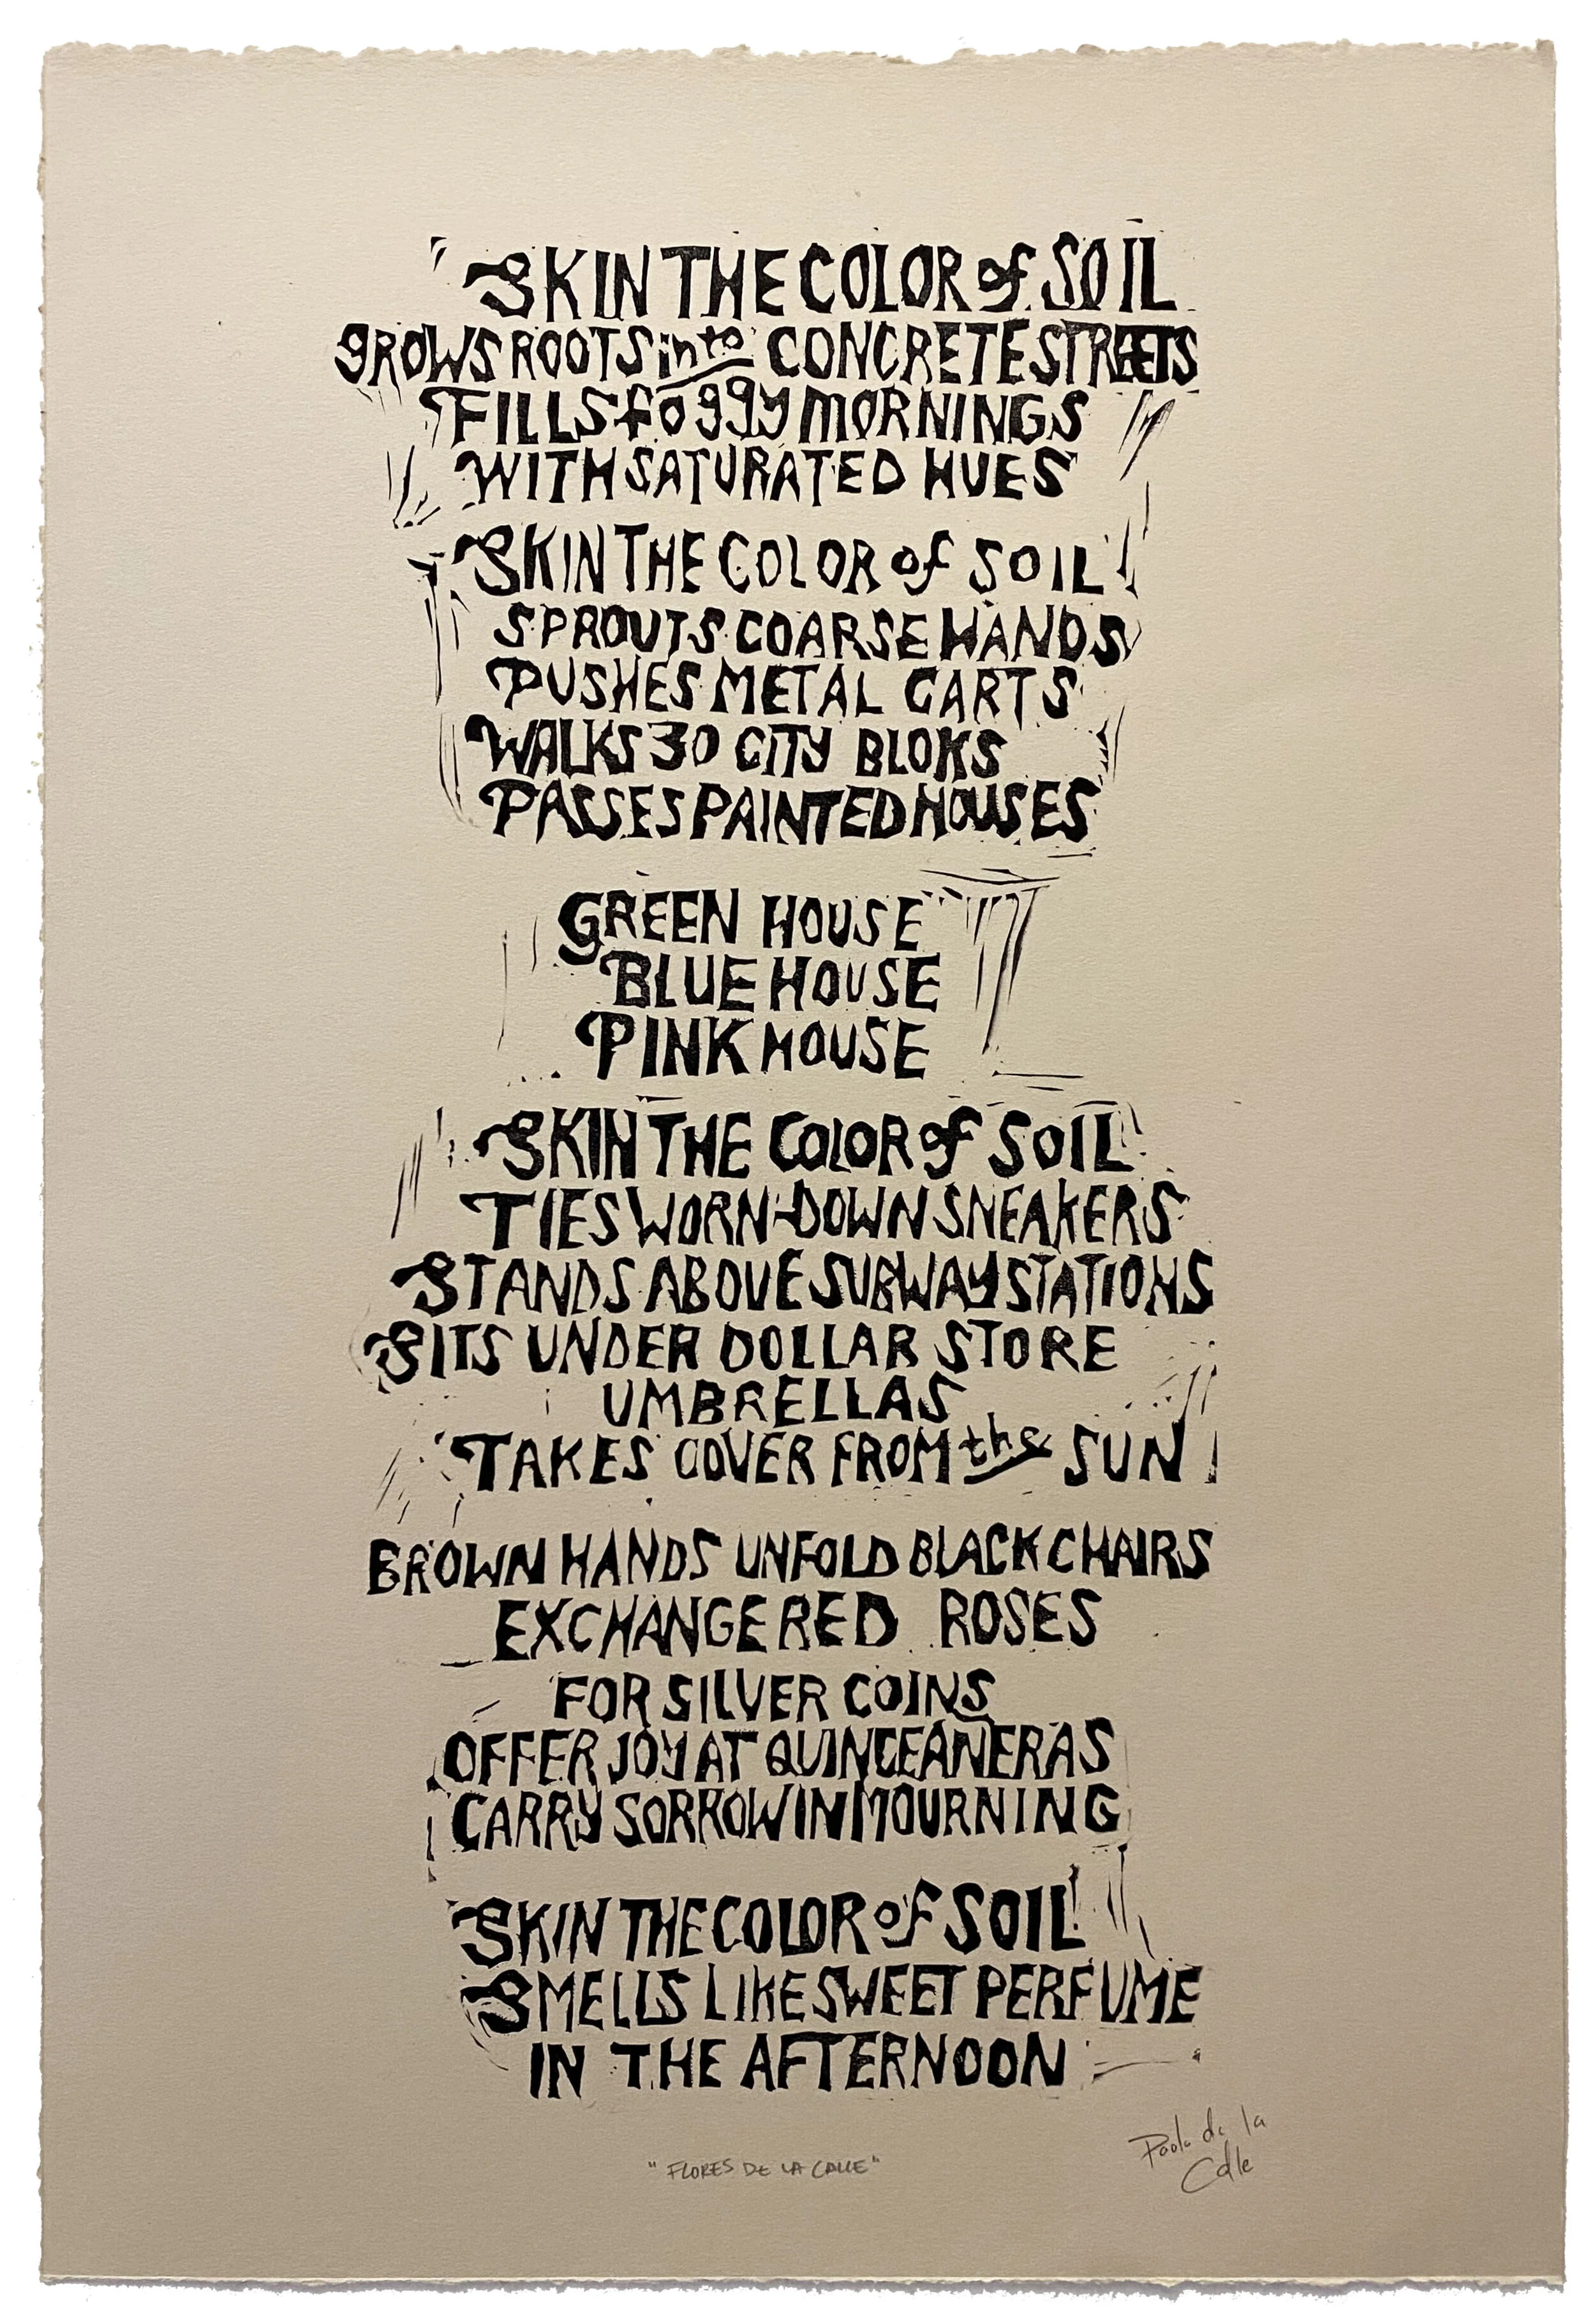 SKIN THE COLOR of SOIL
gROWS ROOTS into CONCRETE STREETS
FILLS foggy mORNINGS
WITH SATURATED HUES
SKIN THE COLOR of SOIL
SPROUTS COARSE HANDS
PUSHES METAL CARTS
WALKS 30 CITY BLOKS
PASSES PAINTED HOUSES
GREEN HOUSE
BLUE HOUSE
PINK HOUSE
SKIN THE COLOR of SOIL
TIES WORN-DOWN SNEAKERS
STANDS ABOVE SUBWAY STATIONS
SITS UNDER DOLLAR STORE
UMBRELLAS
TAKES COVER FROM the SUN
BROWN HANDS UNFOLD BLACK CHAIRS
EXCHANGE RED ROSES
FOR SILVER COINS
OFFER JOY AT QUINCEAÑERAS
CARRY SORROW IN MOURNING
SKIN THE COLOR of SOIL
SMELLS LIKE SWEET PERFUME
IN THE AFTERNOON
Paola de la
Calle
"FLORES DE LA CALLE"